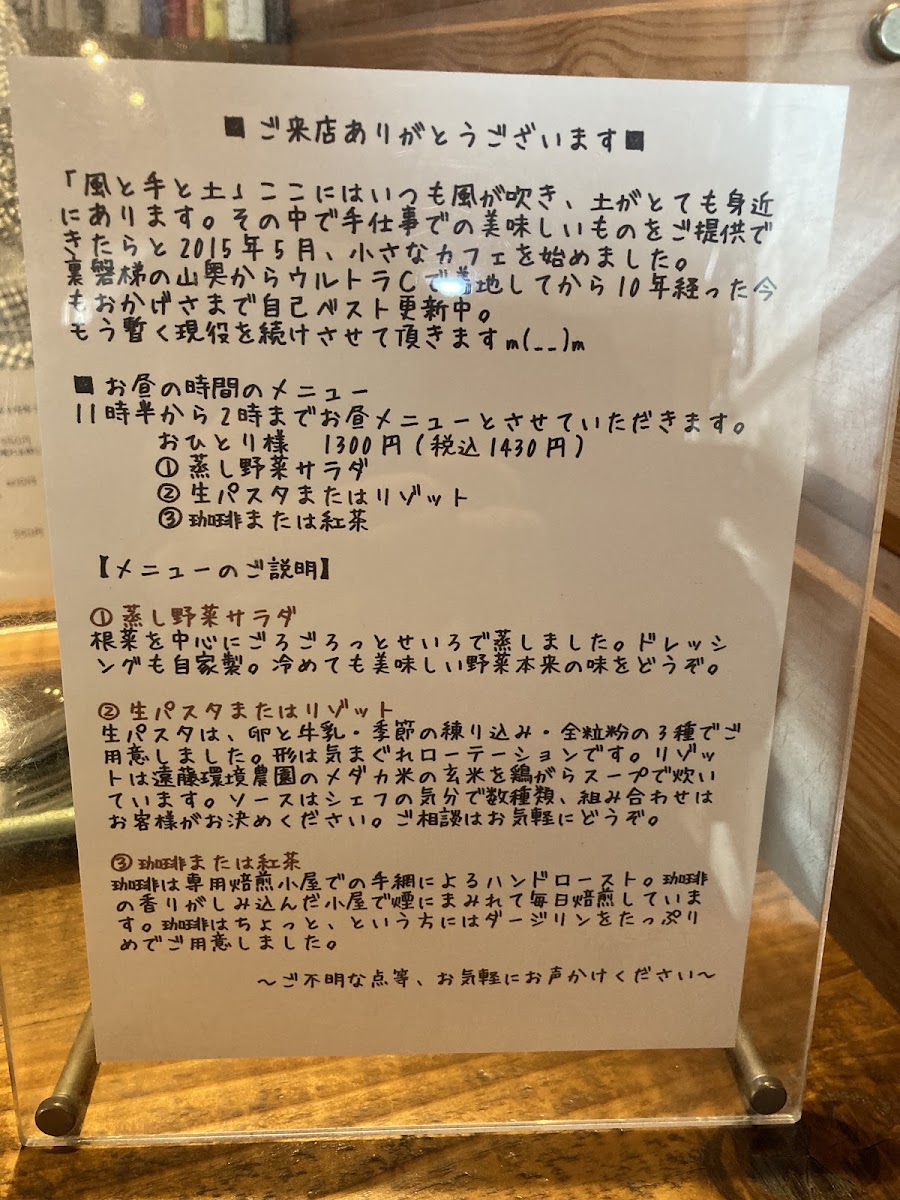 ■ご来店ありがとうございます■
「風と手と土」ここにはいつも風が吹き、土がとても身近
にあります。その中で手仕事での美味しいものをご提供で
きたらと2015年5月、小さなカフェを始めました。
裏磐梯の山奥からウルトラCで着地してから10年経った今
もおかげさまで自己ベスト更新中。
もう暫く現役を続けさせて頂きますm(__)m
■お昼の時間のメニュー
11時半から2時までお昼メニューとさせていただきます。
おひとり様 1300円(税込1430円)
①蒸し野菜サラダ
②生パスタまたはリゾット
③珈琲または紅茶
【メニューのご説明】
①蒸し野菜サラダ
根菜を中心にごろごろっとせいろで蒸しました。ドレッシ
ングも自家製。冷めても美味しい野菜本来の味をどうぞ。
②生パスタまたはリゾット
生パスタは、卵と牛乳・季節の練り込み・全粒粉の3種でご
用意しました。形は気まぐれローテーションです。リゾッ
トは遠藤環境農園のメダカ米の玄米を鶏がらスープで炊い
ています。ソースはシェフの気分で数種類、組み合わせは
お客様がお決めください。ご相談はお気軽にどうぞ。
③珈琲または紅茶
珈琲は専用焙煎小屋での手網によるハンドロースト。珈琲
の香りがしみ込んだ小屋で煙にまみれて毎日焙煎していま
す。珈琲はちょっと、という方にはダージリンをたっぷり
めでご用意しました。
～ご不明な点等、お気軽にお声かけください～